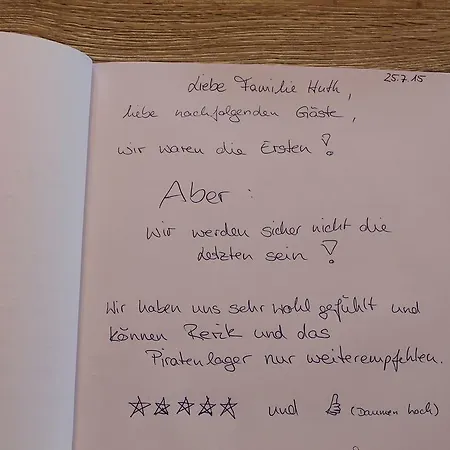 25.7.15
Liebe Familie Huth,
liebe nachfolgenden Gäste,
wir waren die Ersten!
Aber:
Wir werden sicher nicht die
Letzten sein!
Wir haben uns sehr wohl gefühlt und
können Rerik und das
Piratenlager nur weiterempfehlen.
☆☆☆☆☆ und 👍 (Daumen hoch)